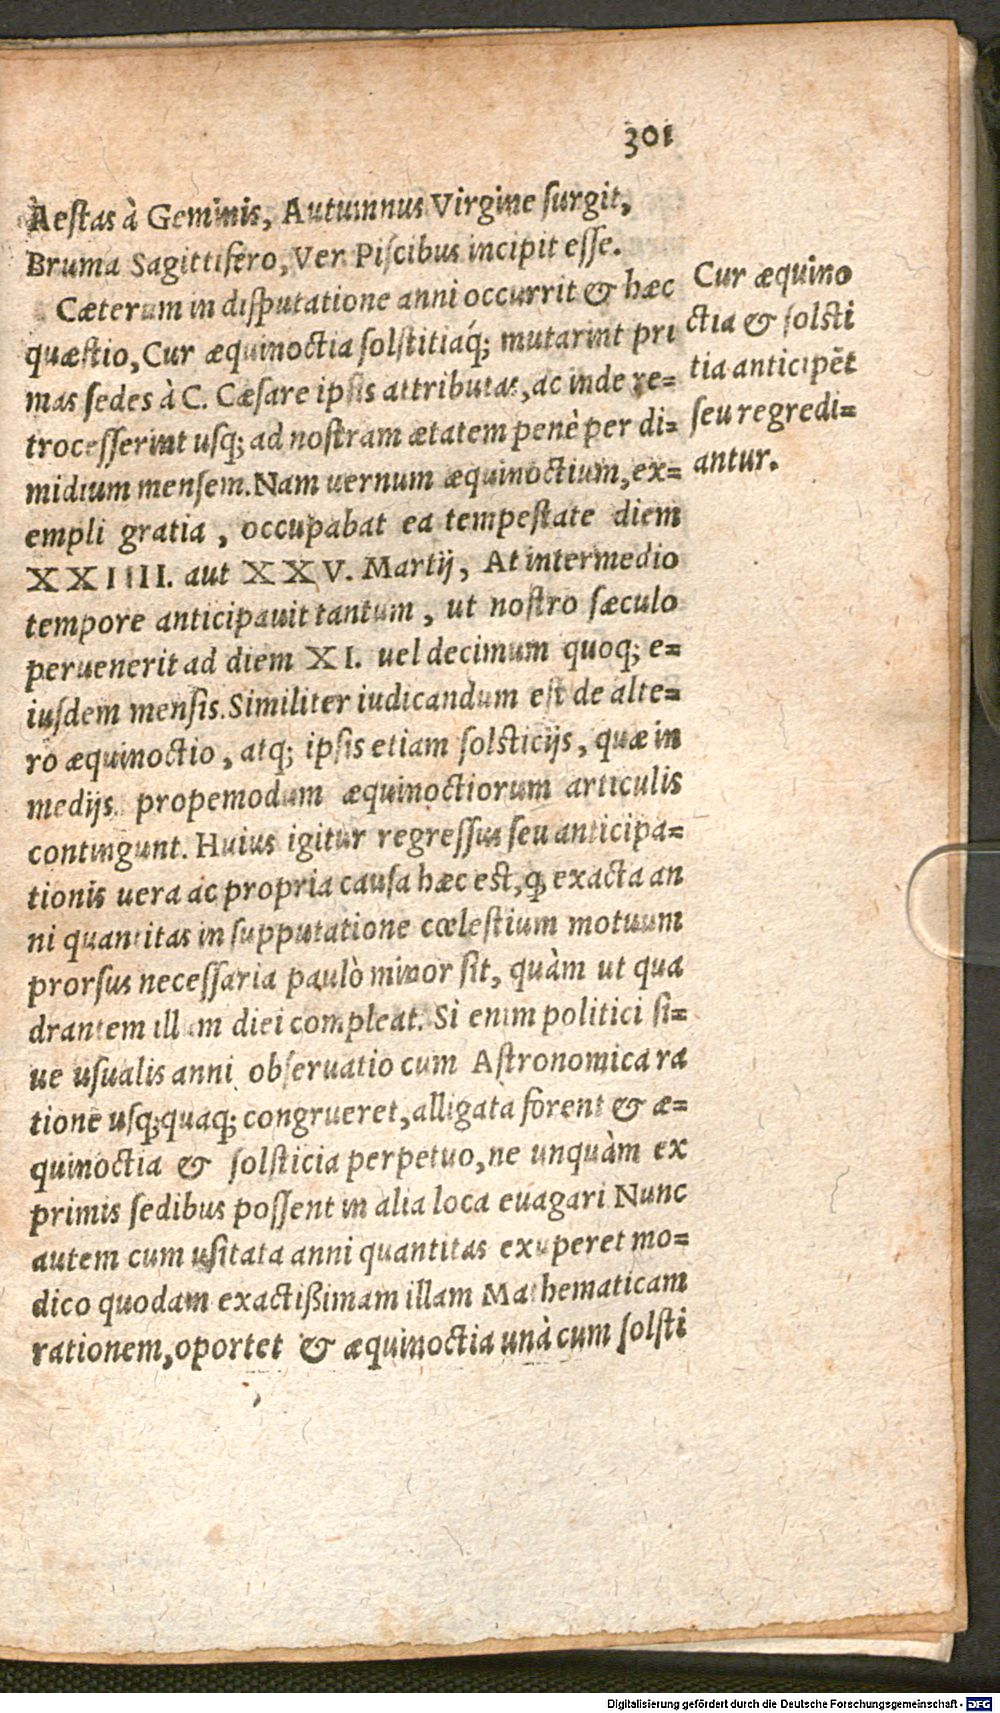 301
Aestas à Geminis, Autumnus Virgine surgit,
Bruma Sagittifero, Ver Piscibus incipit esse.
Cæterum in disputatione anni occurrit & hæc
quæstio, Cur æquinoctia solstitiáq; mutarint pri
mas sedes à C. Cæsare ipsis attributas, ac inde re=
trocesserint usq; ad nostram ætatem penè per di=
midium mensem. Nam uernum æquinoctium, ex=
empli gratia, occupabat ea tempestate diem
XXIIII. aut XXV. Martij, At intermedio
tempore anticipauit tantum, ut nostro sæculo
peruenerit ad diem XI. uel decimum quoq; e=
iusdem mensis. Similiter iudicandum est de alte=
ro æquinoctio, atq; ipsis etiam solsticijs, quæ in
medijs propemodum æquinoctiorum articulis
contingunt. Huius igitur regressus seu anticipa=
tionis uera ac propria causa hæc est, ꝙ exacta an
ni quantitas in supputatione cœlestium motuum
prorsus necessaria paulò minor sit, quàm ut qua
drantem illum diei compleat. Si enim politici si=
ue usualis anni obseruatio cum Astronomica ra
tione usq;quaq; congrueret, alligata forent & æ=
quinoctia & solsticia perpetuo, ne unquàm ex
primis sedibus possent in alia loca euagari Nunc
autem cum usitata anni quantitas exuperet mo=
dico quodam exactißimam illam Mathematicam
rationem, oportet & æquinoctia unà cum solsti
Cur æquino
ctia & solsti
tia anticipẽt
seu regredi=
antur.
Digitalisierung gefördert durch die Deutsche Forschungsgemeinschaft - DFG